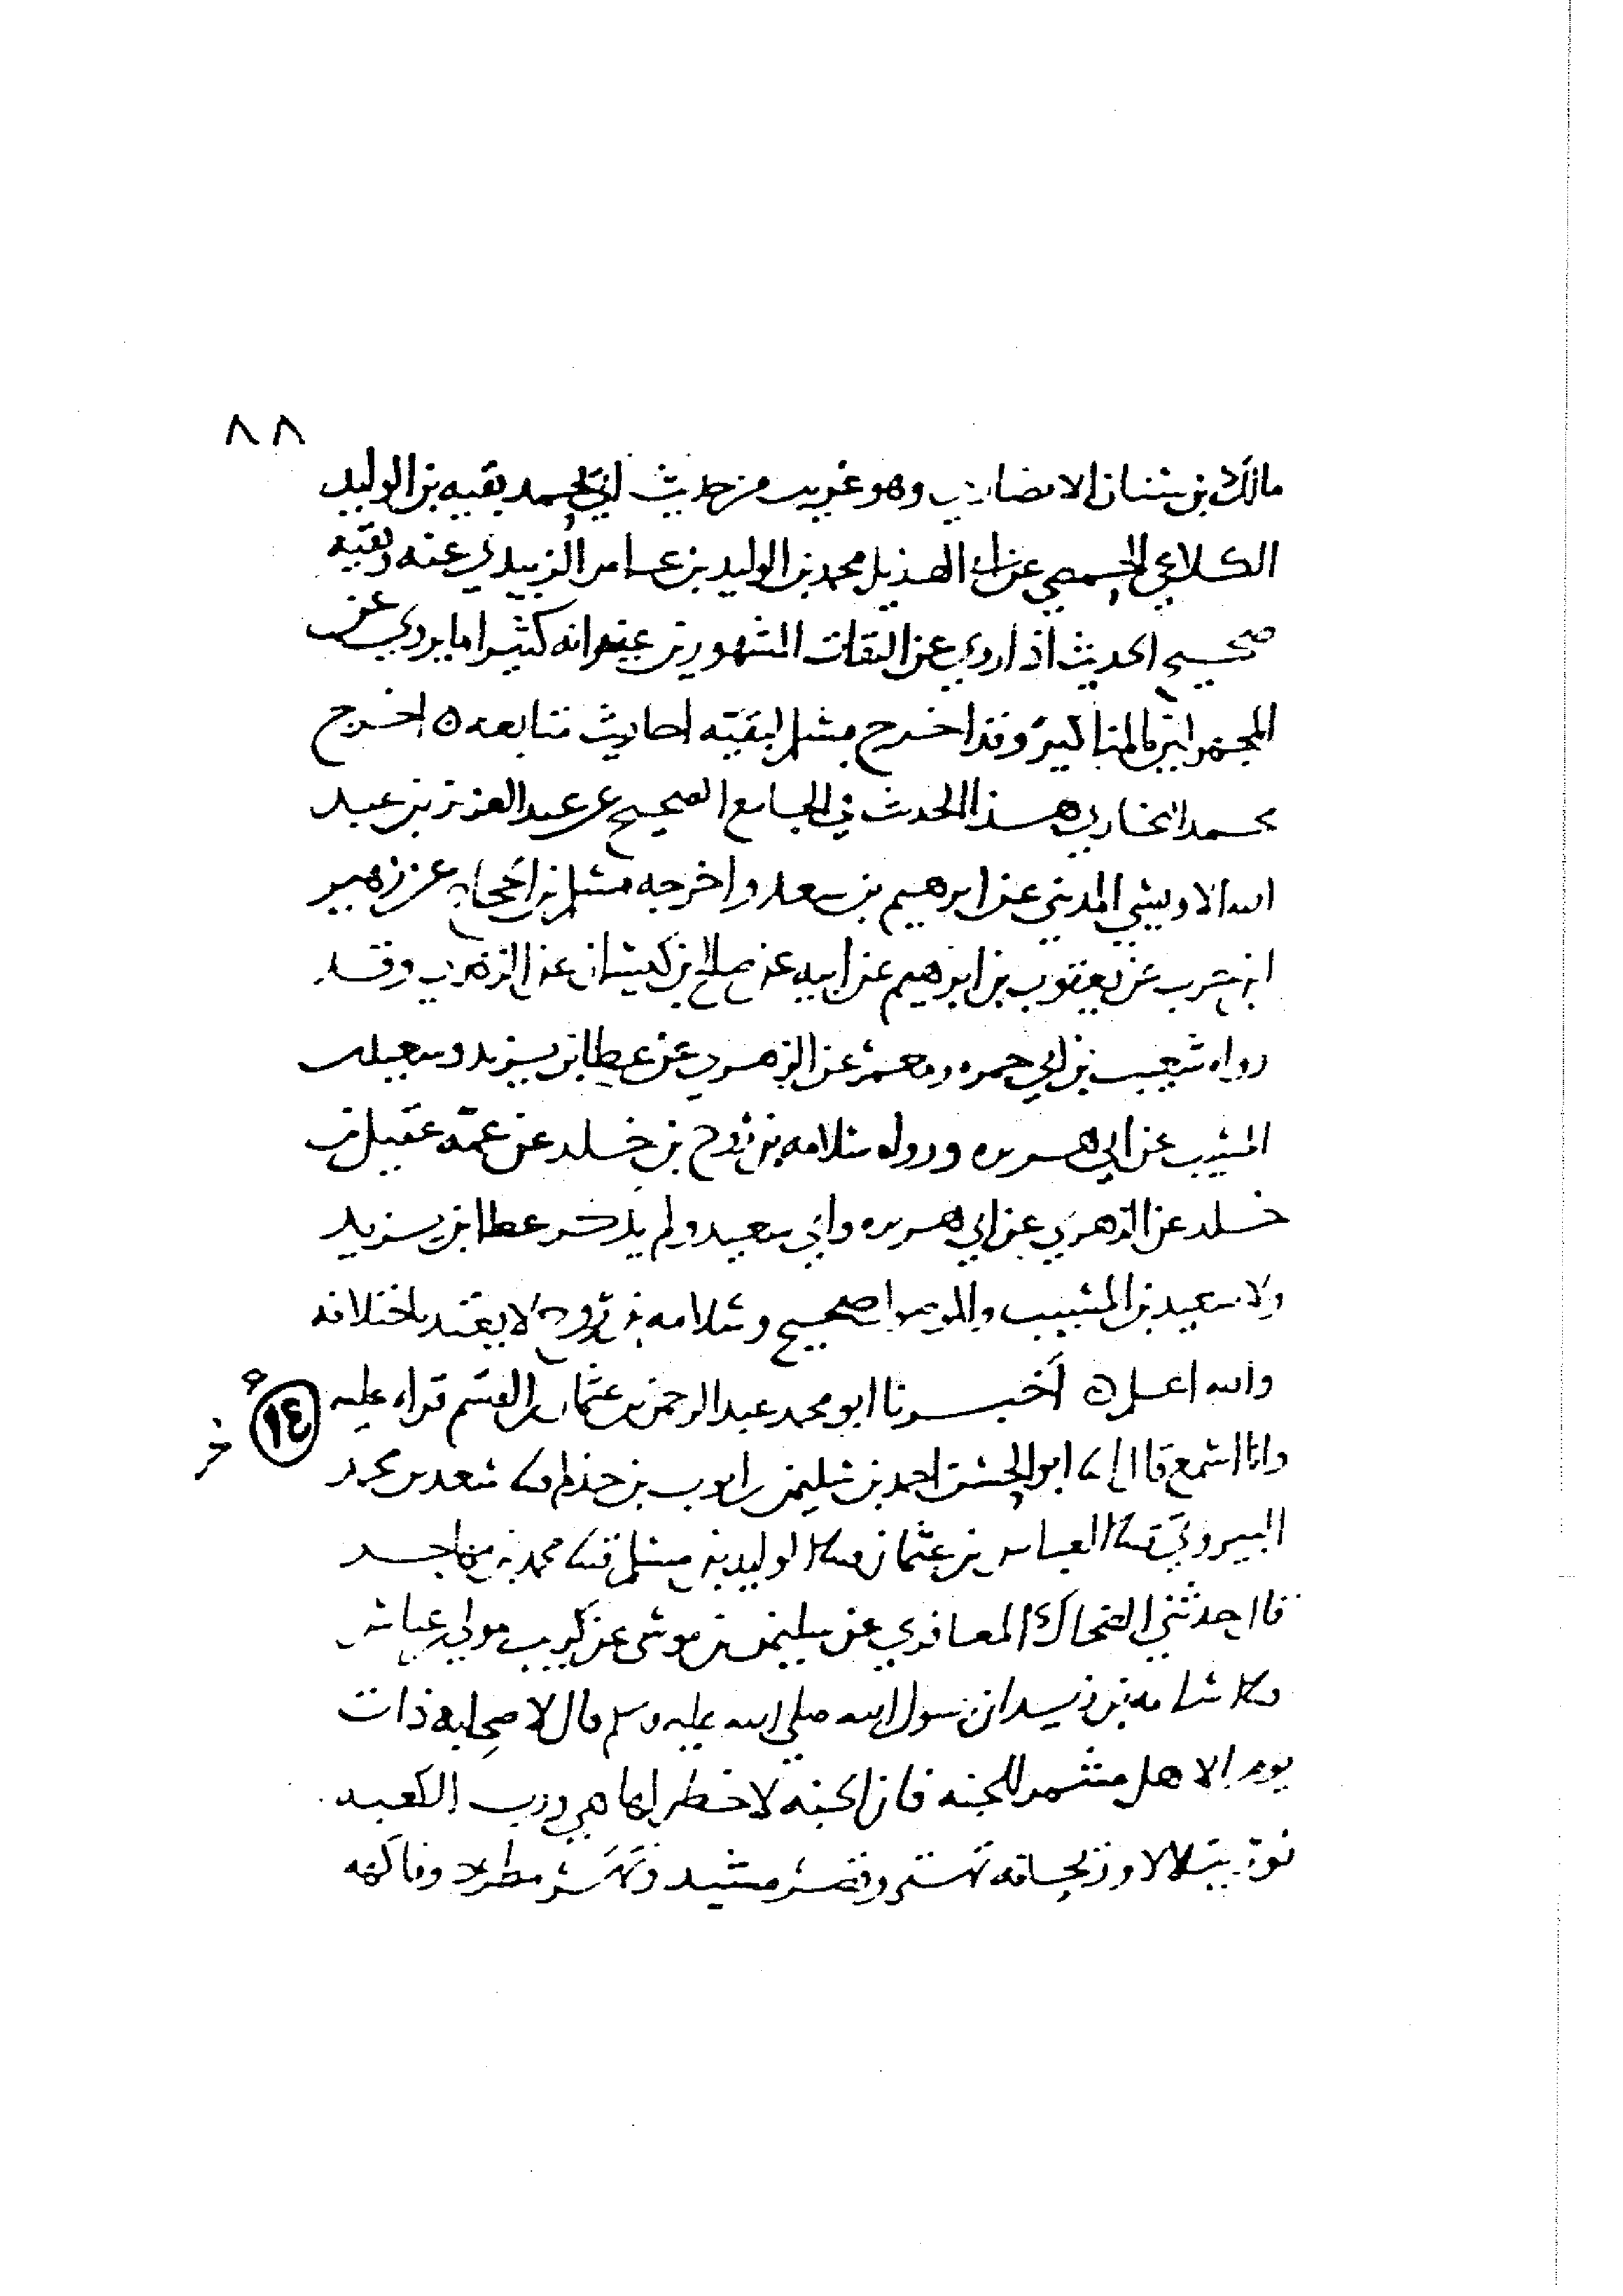 ٨٨
مالك بن سنان الانصاري وهو غريب من حديث ابي يحمد بقيه بن الوليد
الكلاعي الحمصي عن ابي الهذيل محمد بن الوليد بن عامر الزبيدي عنه وبقيه
صحيح الحديث اذا روى عن الثقات المشهورين غير انه كثيرا ما يروي عن
المجهولين المناكير وقد اخرج مسلم لبقيه احاديث متابعه ه اخرج
محمد البخاري هذا الحدث في الجامع الصحيح عن عبد العزيز بن عبد
الله الاويسي المديني عن ابرهيم بن سعد واخرجه مسلم بن الحجاج عن زهير
ابن حرب عن يعقوب بن ابرهيم عن ابيه عن صالح بن كيسان عن الزهري وقد
رواه شعيب بن ابي حمزه ومعمر عن الزهري عن عطا بن يزيد وسعيد بن
المسيب عن ابي هريره ورواه سلامه بن روح بن خلد عن عمه عقيل بن
خلد عن الزهري عن ابي هريره وابي سعيد ولم يذكر عطا بن يزيد
ولا سعيد بن المسيب صحيح وسلامه بن روح لا يعتد باختلافه
والله اعلم ه اخبرنا ابو محمد عبد الرحمن بن عثمان بن القسم قراه عليه
١٤
وانا اسمع قال ثنا ابو الحسن احمد بن سليمن بن ايوب بن حذلم ثنا سعد بن محمد
البيروتي ثنا العباس بن عثمان ثنا الوليد بن مسلم ثنا محمد بن مهاجر
قال حدثني الضحاك المعافري عن سليمن بن موسى عن كريب مولى ابن عباس
ثنا اسامه بن زيد ان رسول الله صلى الله عليه وسلم قال لاصحابه ذات
يوم الا هل مشمر للجنه فان الجنه لا خطر لها هي ورب الكعبه
نور يتلالا وريحانه تهتز وقصر مشيد ونهر مطرد وفاكهه